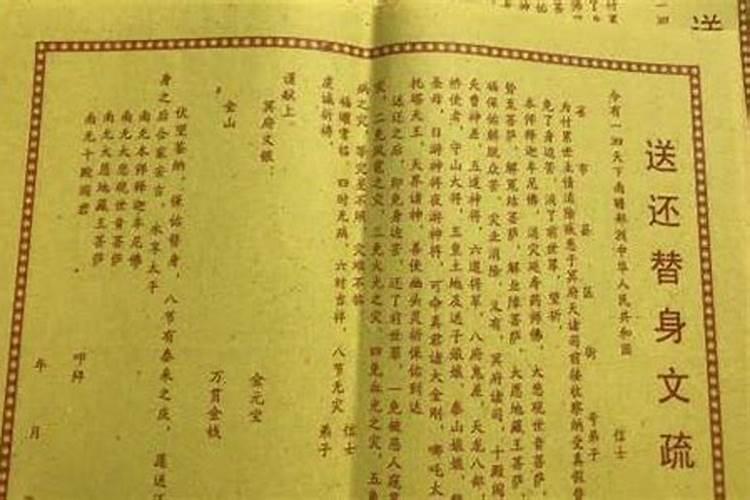 送还替身文疏
今有一四天下南赡部洲中华人民共和国
省 市 县 区 街 号弟子 信士
为付累世主情消除疾患于冥府天诸司前接收察纳受真假替
免了身边苦，消了前世罪，望祈
本师释迦牟尼佛，消灾延寿药师佛，大悲观世音菩萨
势至菩萨，解冤结菩萨，解业障菩萨，大愿地藏王菩萨，
福保佑解脱众苦，灾业消除，又有，冥府诸司，十殿阎
天曹神差，五道神将，六道将军，八府鬼差，天龙八部，
桥使者，守山大将，五皇土地及送子娘娘，泰山娘娘，
圣母，日游神将夜游神将，可命真君诸大金刚，哪吒太
托塔天王，天界诸神，善使幽头灵祈保佑到达
送还之后，即免身边苦，还了前世罪，一免被恶人
灾，二免风雹之灾，三免火光之灾，四免血光之灾，五免
病之灾，等灾差不照，灾难不临
福曜常临，四时无病，六时吉祥，八节无灾 信士
虔诚祈祷， 弟子
谨献上
冥府文银： 金元宝
金山 万贯金钱
伏望鉴纳，保佑替身，八节有泰来之庆，愿送还
身之后合家安吉，永享太平
南无本师释迦牟尼佛
南无大悲观世音菩萨
南无大愿地藏王菩萨
南无十殿阎君
叩拜
年 月
送